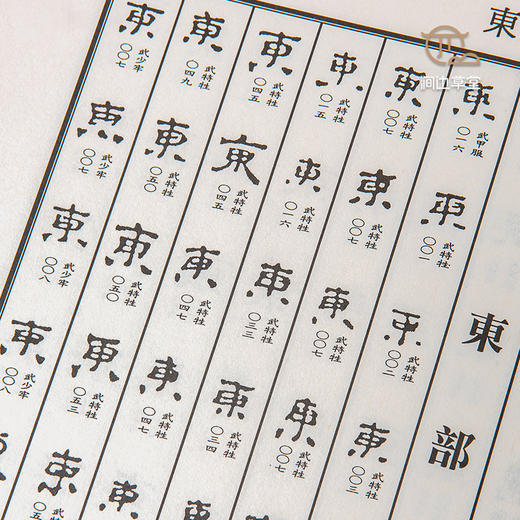 涧边草堂
東
東部
東 武甲服 〇一六
東 武特牲 〇〇一
東 武特牲 〇〇二
東 武特牲 〇〇三
東 武特牲 〇〇七
東 武特牲 〇〇七
東 武特牲 〇〇七
東 武特牲 〇〇七
東 武特牲 〇一五
東 武特牲 〇一六
東 武特牲 〇三三
東 武特牲 〇三四
東 武特牲 〇四五
東 武特牲 〇四五
東 武特牲 〇四七
東 武特牲 〇四七
東
東 武特牲 〇四九
東 武特牲 〇五〇
東 武特牲 〇五〇
東 武特牲 〇五三
東 武少牢 〇〇七
東 武少牢 〇〇七
東 武少牢 〇〇八
東 武少牢 〇〇八